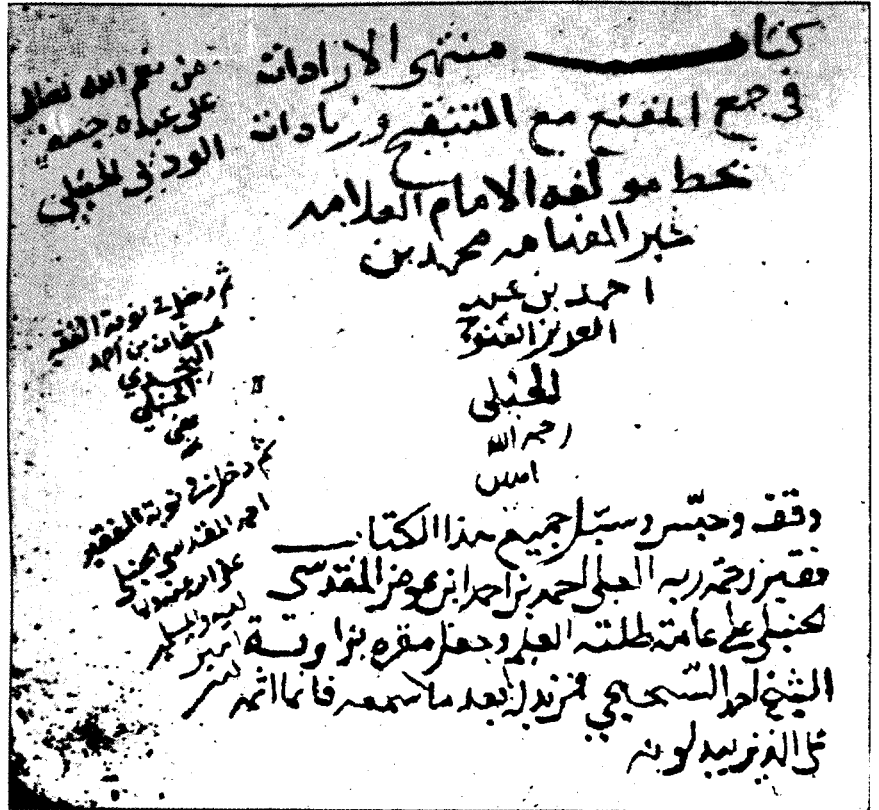 كتاب منتهى الارادات
في جمع المقنع مع التنقيح وزيادات
بخط مولفه الامام العلامه
محمد بن
احمد بن عبد
العزيز الفتوحي
الحنبلي
رحمه الله
امين
من نعم الله تعالى
على عبده
الحنبلي
ثم دخل في نوبة الفقير
عثمان بن احمد
النجدي
الحنبلي
عفي
عنه
ثم دخل في نوبة الفقير
احمد المقدسي الحنبلي
غفر الله له ولوالديه
امين
وقف وحبّس وسبّل جميع هذا الكتاب
فقير رحمة ربه العلي احمد بن احمد ابن عوض المقدسي
الحنبلي على عامة طلبة العلم وجعل مقره بزاوية
الشيخ احمد السحيمي فمن بدله بعد ما سمعه فانما اثمه
على الذين يبدلونه